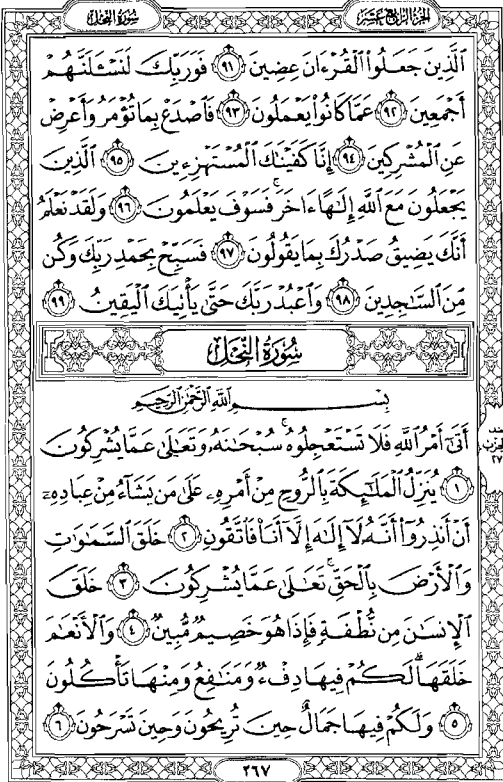 سُورَةُ النَّحْلِ
الجُزْءُ الرَّابِعَ عَشَرَ
الَّذِينَ جَعَلُوا الْقُرْءَانَ عِضِينَ ٩١ فَوَرَبِّكَ لَنَسْـَٔلَنَّهُمْ
أَجْمَعِينَ ٩٢ عَمَّا كَانُوا يَعْمَلُونَ ٩٣ فَاصْدَعْ بِمَا تُؤْمَرُ وَأَعْرِضْ
عَنِ الْمُشْرِكِينَ ٩٤ إِنَّا كَفَيْنَاكَ الْمُسْتَهْزِءِينَ ٩٥ الَّذِينَ
يَجْعَلُونَ مَعَ اللَّهِ إِلَٰهًا ءَاخَرَ ۚ فَسَوْفَ يَعْلَمُونَ ٩٦ وَلَقَدْ نَعْلَمُ
أَنَّكَ يَضِيقُ صَدْرُكَ بِمَا يَقُولُونَ ٩٧ فَسَبِّحْ بِحَمْدِ رَبِّكَ وَكُن
مِّنَ السَّاجِدِينَ ٩٨ وَاعْبُدْ رَبَّكَ حَتَّىٰ يَأْتِيَكَ الْيَقِينُ ٩٩
سُورَةُ النَّحْلِ
بِسْمِ اللَّهِ الرَّحْمَٰنِ الرَّحِيمِ
أَتَىٰٓ أَمْرُ اللَّهِ فَلَا تَسْتَعْجِلُوهُ ۚ سُبْحَانَهُ وَتَعَالَىٰ عَمَّا يُشْرِكُونَ
١ يُنَزِّلُ الْمَلَٰٓئِكَةَ بِالرُّوحِ مِنْ أَمْرِهِ عَلَىٰ مَن يَشَآءُ مِنْ عِبَادِهِٓ
أَنْ أَنذِرُوٓا أَنَّهُ لَآ إِلَٰهَ إِلَّآ أَنَا۠ فَاتَّقُونِ ٢ خَلَقَ السَّمَاوَاتِ
وَالْأَرْضَ بِالْحَقِّ ۚ تَعَالَىٰ عَمَّا يُشْرِكُونَ ٣ خَلَقَ
الْإِنسَانَ مِن نُّطْفَةٍ فَإِذَا هُوَ خَصِيمٌ مُّبِينٌ ٤ وَالْأَنْعَامَ
خَلَقَهَا ۗ لَكُمْ فِيهَا دِفْءٌ وَمَنَافِعُ وَمِنْهَا تَأْكُلُونَ
٥ وَلَكُمْ فِيهَا جَمَالٌ حِينَ تُرِيحُونَ وَحِينَ تَسْرَحُونَ ٦
الحزب
٢٧
٢٦٧